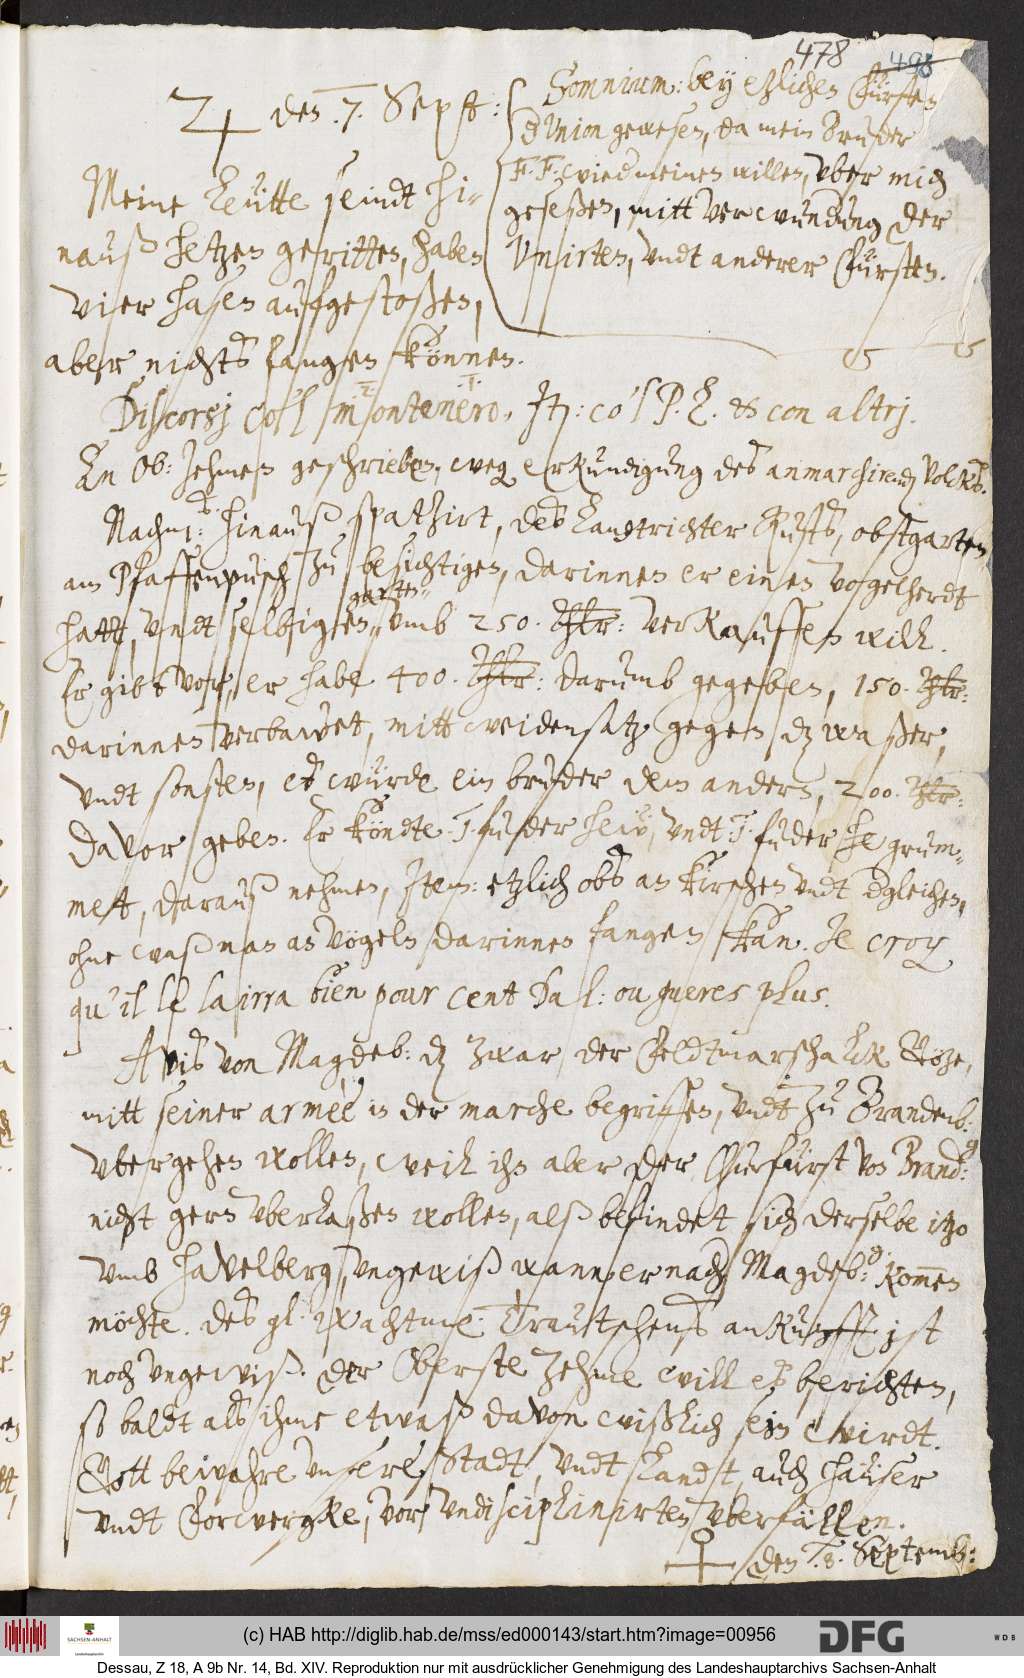 478 498
♃ den 7. Sept:
Somnium: bey etzlichen Fürsten
d Union gewesen, da mein bruder
F. F. wied meinen willen, vber mich
geseßen, mitt verwundung der
Vnirten, vndt anderer Fürsten.
Meine Leütte seindt hi-
nauß hetzen geritten, haben
vier hasen aufgestoßen,
aber nichts fangen können.
Discorsj co'l Montenero, It: co'l P. L. & con altrj.
An Ob: Zehmen geschrieben, weg erkundigung des anmarchirendn volcks.
Nachm: hinauß spatzirt, des Landtrichter Rusts, obstgarten,
am Pfaffenpusch zu besichtigen, darinnen er einen vogelherdt
hatt, vndt selbigen garten vmb 250 Thlr: verkauffen will.
Er gibt vor, er habe 400 Thlr: darumb gegeben, 150 Thlr:
darinnen verbawet, mitt weidensatz gegen dz waßer,
vndt sonsten, es würde ein bruder dem andern, 200 Thlr:
davor geben. Er köndte 1 fuder heẅ, vndt 1 fuder
met, darauß nehmen, Item: etzlich obs an kirschen vndt dgleichen,
ohne waß man an vögeln darinnen fangen kan. Je croy
qu'il le lairra bien pour cent Dal: ou gueres plus.
Avis von Magdeb: dz zwar der Feldtmarschalck
mitt seiner armèè in der marche begriffen, vndt zu Brandenb:
vbergehen wollen, weil ihn aber der Churfürst von Brand:
nicht gern vberlaßen wollen, alß befindet sich derselbe itzo
vmb Havelberg, vngewiß wann er nach Magdeb: kommen
möchte. des gl. Wachtm: Trautschens ankunfft ist
noch vngewiß. der Oberste Zehme will es berichten,
so baldt als ihme etwaß davon wißlich sein wirdt.
Gott bewahre vnsere Stadt, vndt landt, auch haüser
vndt Forwergke, vor vndisciplinirten vberfällen.
♀ den 8. Septemb:
(c) HAB http://diglib.hab.de/mss/ed000143/start.htm?image=00956
SACHSEN-ANHALT
DFG
WDB
Dessau, Z 18, A 9b Nr. 14, Bd. XIV. Reproduktion nur mit ausdrücklicher Genehmigung des Landeshauptarchivs Sachsen-Anhalt